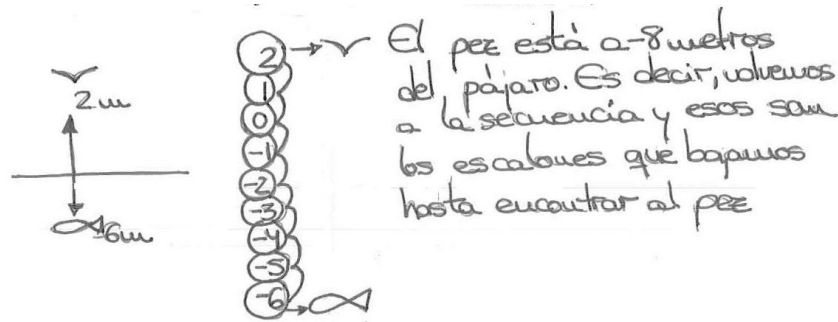 2m
-6m
2
1
0
-1
-2
-3
-4
-5
-6
El pez está a -8 metros
del pájaro. Es decir, volvemos
a la secuencia y esos son
los escalones que bajamos
hasta encontrar al pez